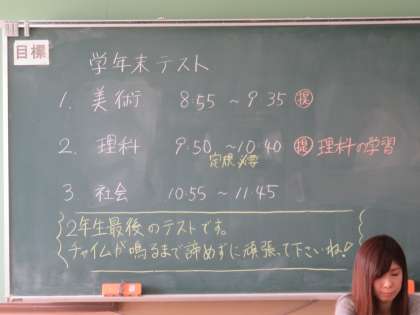 目標
学年末テスト
1. 美術 8:55 ～ 9:35 提
2. 理科 9:50 ～ 10:40 提 理科の学習
定規必要
3 社会 10:55 ～ 11:45
2年生最後のテストです。
チャイムが鳴るまで諦めずに頑張って下さいね！